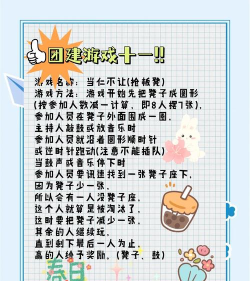 团建游戏十一!!
游戏名称：当仁不让(抢板凳)
游戏方法：游戏开始先把凳子成圆形
(按参加人数减一计算，即8人摆7张)，
参加人员在凳子外面围成一圈，
主持人敲鼓或放音乐时
参加人员就沿着圆形顺时针
或逆时针跑动(注意不能插队)
当鼓声或音乐停下时
参加人员要讯速找到一张凳子座下，
因为凳子少一张，
所以会有一人没凳子座，
这个人就算是被淘汰了，
这时要把凳子减少一张，
其余的人继续玩，
直到剩下最后一人为止，
赢的人给予奖励。(凳子、鼓)
春日